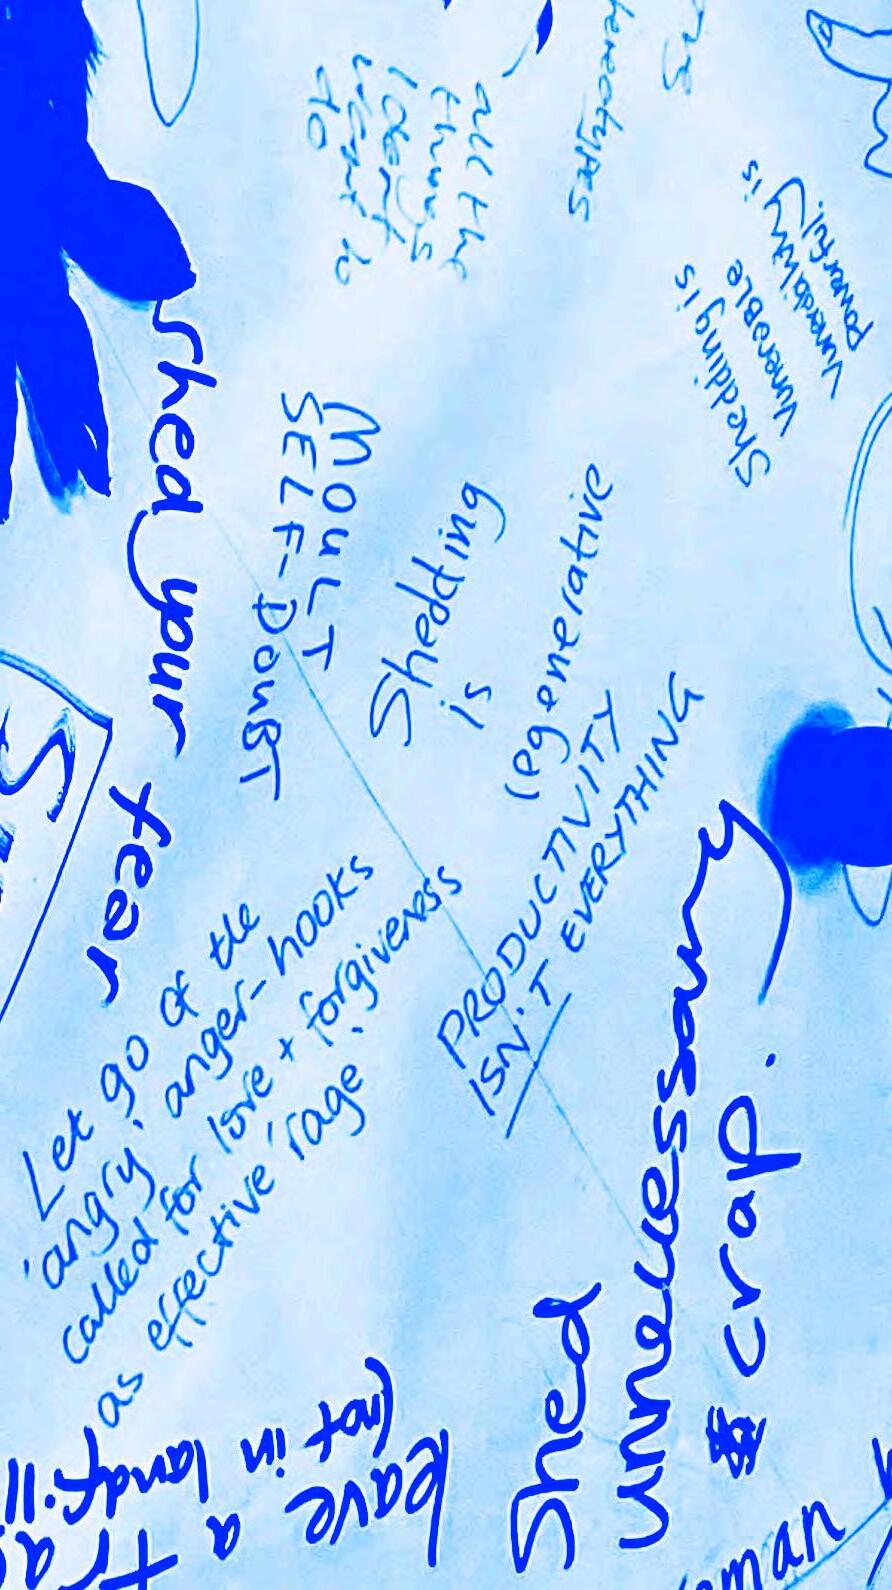 all the
things
I don't
want to
do
stereotypes
Shedding is
vunerable
Vunerability is
powerful.
shed your fear
MOULT
SELF-DOUBT
Shedding
is
regenerative
PRODUCTIVITY
ISN'T EVERYTHING
Let go of the
'angry' anger-hooks
called for love + forgiveness
as effective 'rage'.
Shed
unnecessary
crap.
leave a
(not in landfill